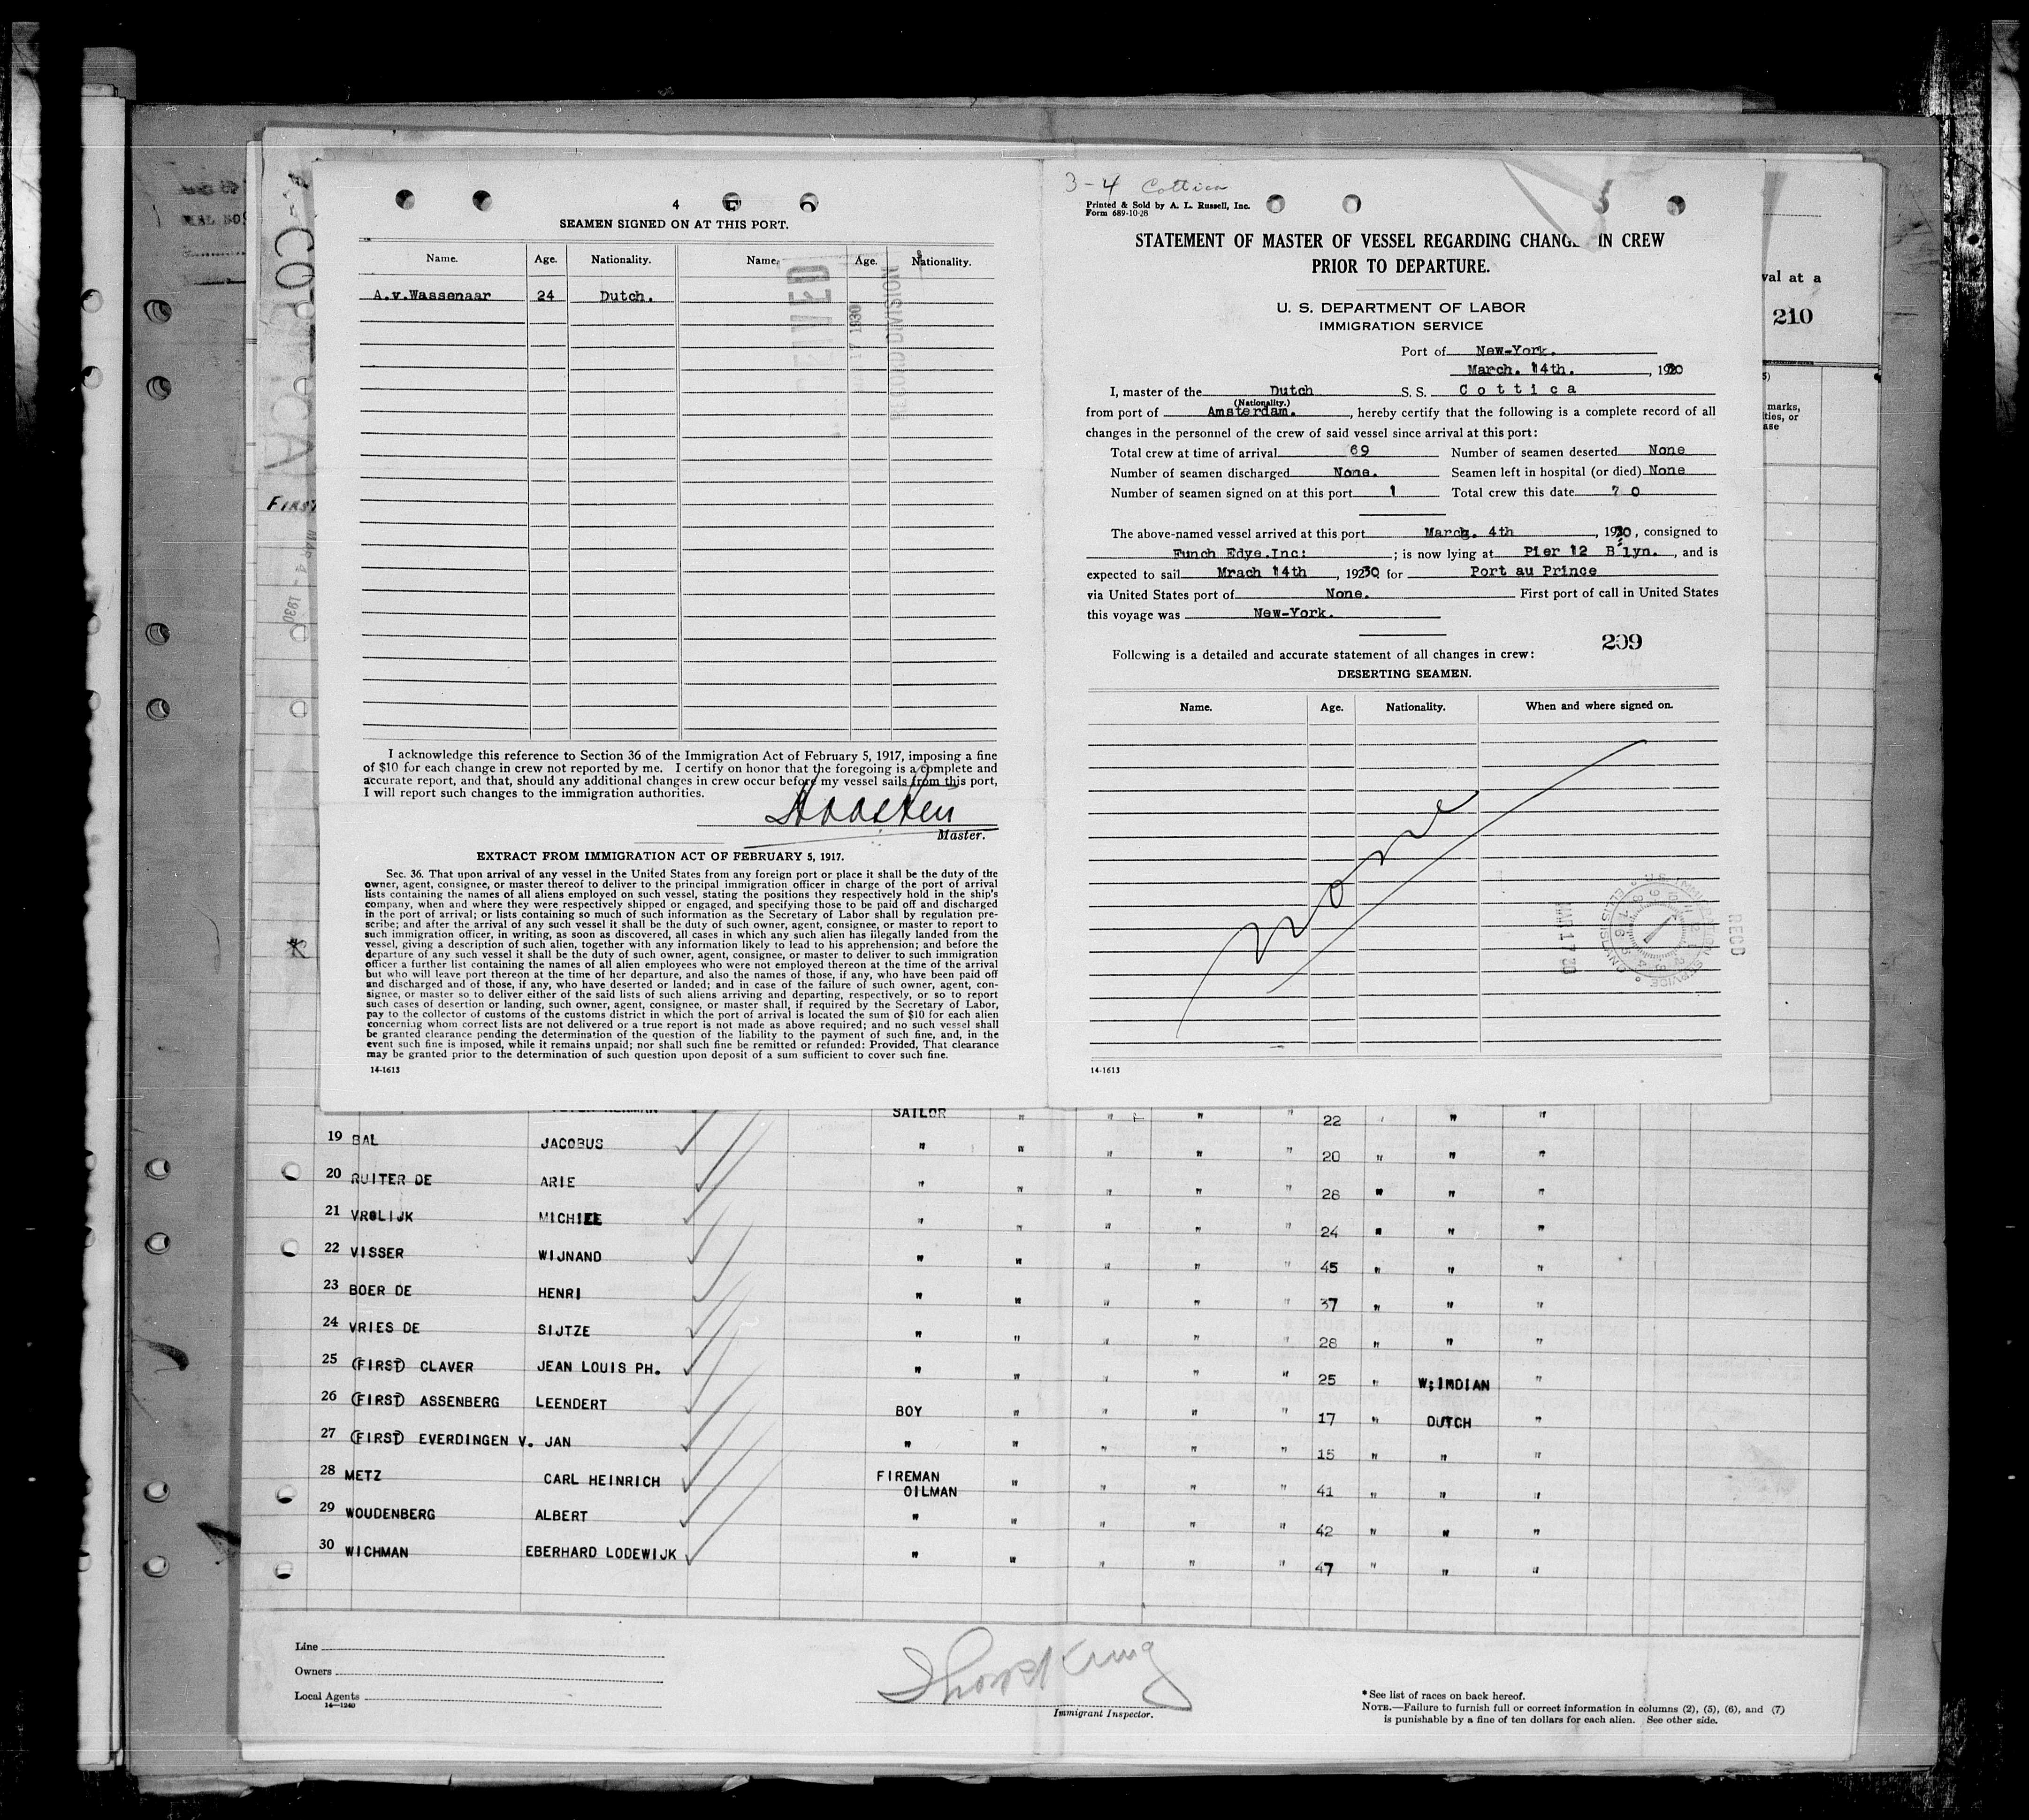 4
SEAMEN SIGNED ON AT THIS PORT.
Name. Age. Nationality. Name. Age. Nationality.
A.v.Wassenaar 24 Dutch.
I acknowledge this reference to Section 36 of the Immigration Act of February 5, 1917, imposing a fine
of $10 for each change in crew not reported by me. I certify on honor that the foregoing is a complete and
accurate report, and that, should any additional changes in crew occur before my vessel sails from this port,
I will report such changes to the immigration authorities.
Master.
EXTRACT FROM IMMIGRATION ACT OF FEBRUARY 5, 1917.
Sec. 36. That upon arrival of any vessel in the United States from any foreign port or place it shall be the duty of the
owner, agent, consignee, or master thereof to deliver to the principal immigration officer in charge of the port of arrival
lists containing the names of all aliens employed on such vessel, stating the positions they respectively hold in the ship's
company, when and where they were respectively shipped or engaged, and specifying those to be paid off and discharged
in the port of arrival; or lists containing so much of such information as the Secretary of Labor shall by regulation pre-
scribe; and after the arrival of any such vessel it shall be the duty of such owner, agent, consignee, or master to report to
such immigration officer, in writing, as soon as discovered, all cases in which any such alien has illegally landed from the
vessel, giving a description of such alien, together with any information likely to lead to his apprehension; and before the
departure of any such vessel it shall be the duty of such owner, agent, consignee, or master to deliver to such immigration
officer a further list containing the names of all alien employees who were not employed thereon at the time of the arrival
but who will leave port thereon at the time of her departure, and also the names of those, if any, who have been paid off
and discharged and of those, if any, who have deserted or landed; and in case of the failure of such owner, agent, con-
signee, or master so to deliver either of the said lists of such aliens arriving and departing, respectively, or so to report
such cases of desertion or landing, such owner, agent, consignee, or master shall, if required by the Secretary of Labor,
pay to the collector of customs of the customs district in which the port of arrival is located the sum of $10 for each alien
concerning whom correct lists are not delivered or a true report is not made as above required; and no such vessel shall
be granted clearance pending the determination of the question of the liability to the payment of such fine, and, in the
event such fine is imposed, while it remains unpaid; nor shall such fine be remitted or refunded: Provided, That clearance
may be granted prior to the determination of such question upon deposit of a sum sufficient to cover such fine.
14-1613
3-4 Cottica
Printed & Sold by A. L. Russell, Inc.
Form 689-10-28
STATEMENT OF MASTER OF VESSEL REGARDING CHANGE IN CREW
PRIOR TO DEPARTURE.
U. S. DEPARTMENT OF LABOR
IMMIGRATION SERVICE
Port of New-York.
March. 14th. , 1930
I, master of the Dutch S. S. Cottica
(Nationality.)
from port of Amsterdam. , hereby certify that the following is a complete record of all
changes in the personnel of the crew of said vessel since arrival at this port:
Total crew at time of arrival 69 Number of seamen deserted None
Number of seamen discharged None. Seamen left in hospital (or died) None
Number of seamen signed on at this port 1 Total crew this date 70
The above-named vessel arrived at this port March. 4th , 1930, consigned to
Funch Edye.Inc: ; is now lying at Pier 12 B'lyn. , and is
expected to sail Mrach 14th , 1930 for Port au Prince
via United States port of None. First port of call in United States
this voyage was New-York.
209
Following is a detailed and accurate statement of all changes in crew:
DESERTING SEAMEN.
Name. Age. Nationality. When and where signed on.
None
RECD
14-1613
val at a
210
marks,
ties, or
ase
FIRST
MAR 4 - 1930
SAILOR " " " " 22 " " "
19 BAL JACOBUS " " " " " 20 " " "
20 RUITER DE ARIE " " " " " 28 " " "
21 VROLIJK MICHIEL " " " " " 24 " " "
22 VISSER WIJNAND " " " " " 45 " " "
23 BOER DE HENRI " " " " " 37 " " "
24 VRIES DE SIJTZE " " " " " 28 " " "
25 (FIRST) CLAVER JEAN LOUIS PH. " " " " " 25 " W;INDIAN "
26 (FIRST) ASSENBERG LEENDERT BOY " " " " 17 " DUTCH "
27 (FIRST) EVERDINGEN V. JAN " " " " " 15 " " "
28 METZ CARL HEINRICH FIREMAN OILMAN " " " " 41 " " "
29 WOUDENBERG ALBERT " " " " " 42 " " "
30 WICHMAN EBERHARD LODEWIJK " " " " " 47 " " "
Line
Owners
Local Agents
14-1240
Immigrant Inspector.
* See list of races on back hereof.
NOTE.—Failure to furnish full or correct information in columns (2), (5), (6), and (7)
is punishable by a fine of ten dollars for each alien. See other side.